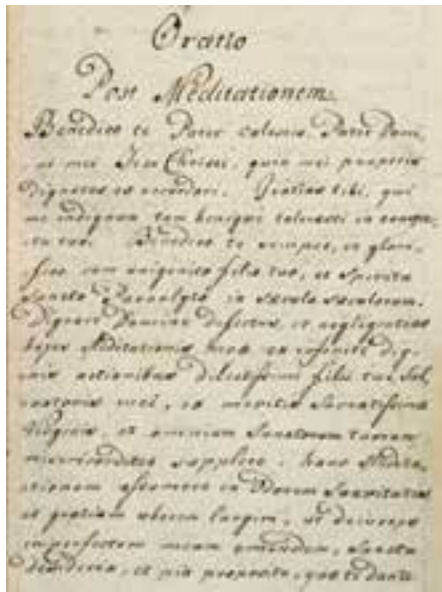 Oratio
Post Meditationem.
Benedico te Pater coelestis, Pater Domi-
ni mei Jesu Christi, quia mei pauperis
dignatus es recordari. Gratias tibi, qui
me indignum tam benigne tolerasti in conspe-
ctu tuo. Benedico te semper, et glori-
fico cum unigenito filio tuo, et Spiritu
Sancto Paraclyto in saecula saeculorum.
Domine defectus, et negligentias
hujus Meditationis meae ex infinite dig-
nis actionibus dilectissimi filii tui Sal-
vatoris mei, ex meritis Sacratissimae
Virginis, et omnium Sanctorum tuorum
misericorditer supplere, hanc Medita-
tionem assumere in Odorem Suavitatis
et gratiam uberem largiri, ut deinceps
imperfectum meum emendem, sancta
desideria, et pia proposita, quae te dante